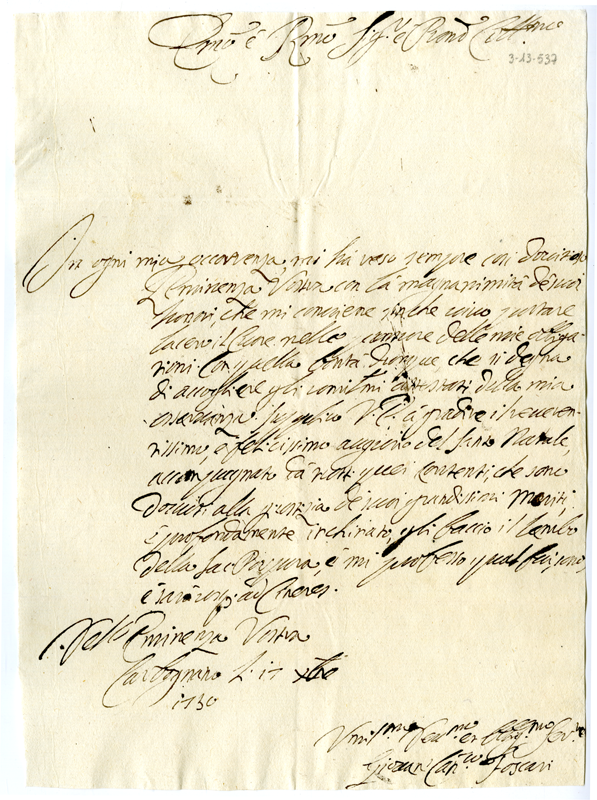 Emō é Rmō Sig.r é Pron̄ Coll.mo
3-13-537
In ogni mia occorrenza, mi hà reso sempre così
l'Eminenza Vostra con la magnanimità de suoi
che mi conviene finche vivo portare
il Cuore nelle delle mie obliga-
zioni. Con quella bontà dunque, che si degna
di accogliere gl'umilmi attestati della mia
osservanza supplico V. E. à gradire il reveren-
tissimo, e felicissimo augurio del Santo Natale,
accompagnato dà tutti quei contenti, che sono
dovuti alla giustizia de suoi grandissimi Meriti,
e profondamente inchinato, gli baccio il lembo
della Sac. Porpora, è mi professo qual fui, sono,
e sarò
Dell'Eminenza Vostra
Carbognano li 17 Xbre
1730
Umil.mo Devo.mo et Oblig.mo Ser.re
Giovan Foscari